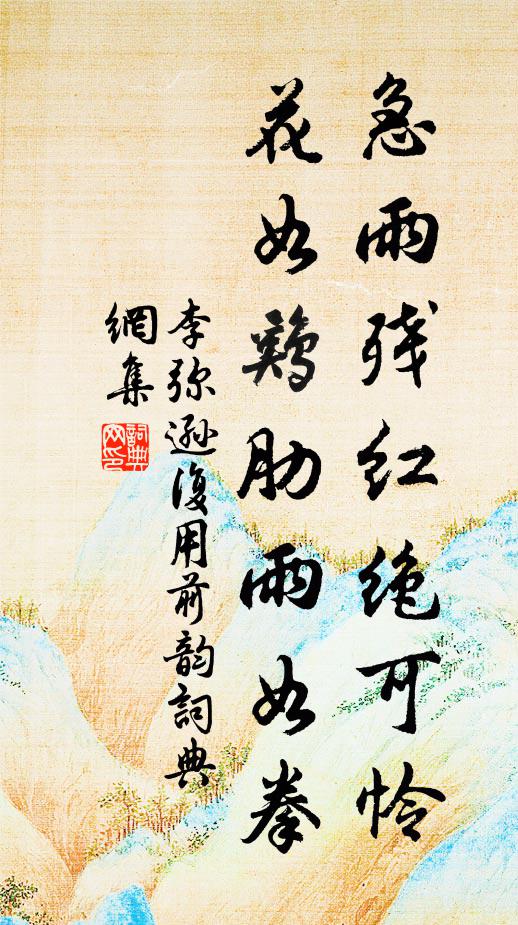 急雨残红绝可怜
花如鷄肋雨如拳
李弥逊復用前韵詞典
網集
詞典
网印